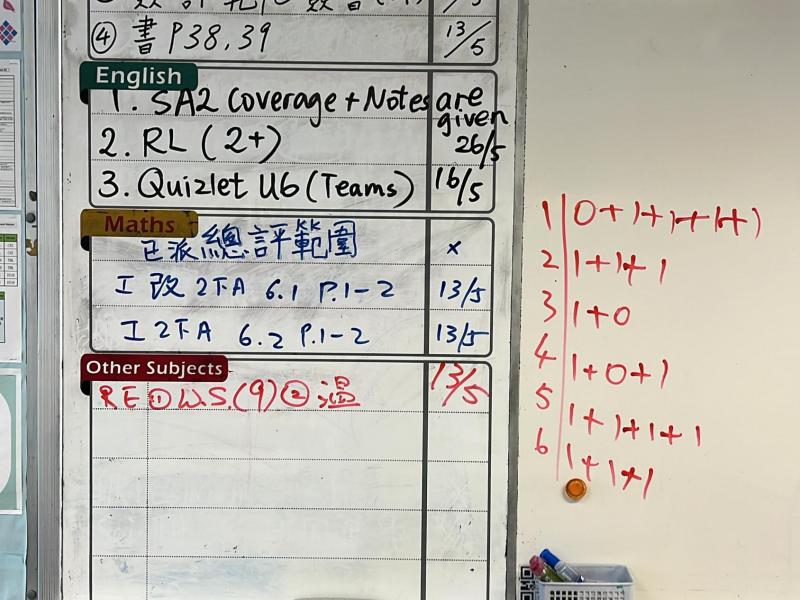 ④ 書 P38,39 13/5
English
1. SA2 Coverage + Notes are given
2. RL (2+) 26/5
3. Quizlet U6 (Teams) 16/5
Maths
已派總評範圍 x
工 改 2下A 6.1 P.1-2 13/5
工 2下A 6.2 P.1-2 13/5
Other Subjects 13/5
RE ① W.S.(9) ② 溫
1 0+1+1+1+1
2 1+1+1
3 1+0
4 1+0+1
5 1+1+1+1
6 1+1+1